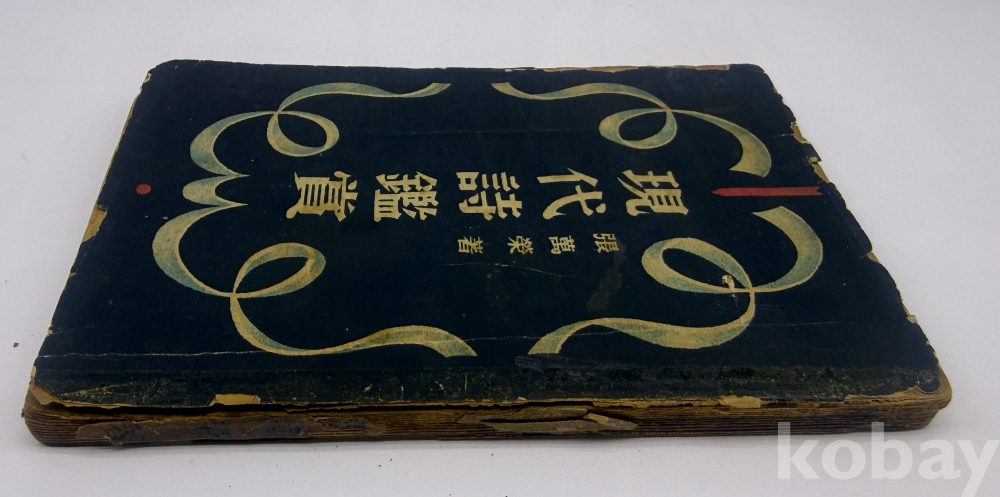 現代詩鑑賞
張萬榮 著
kobay